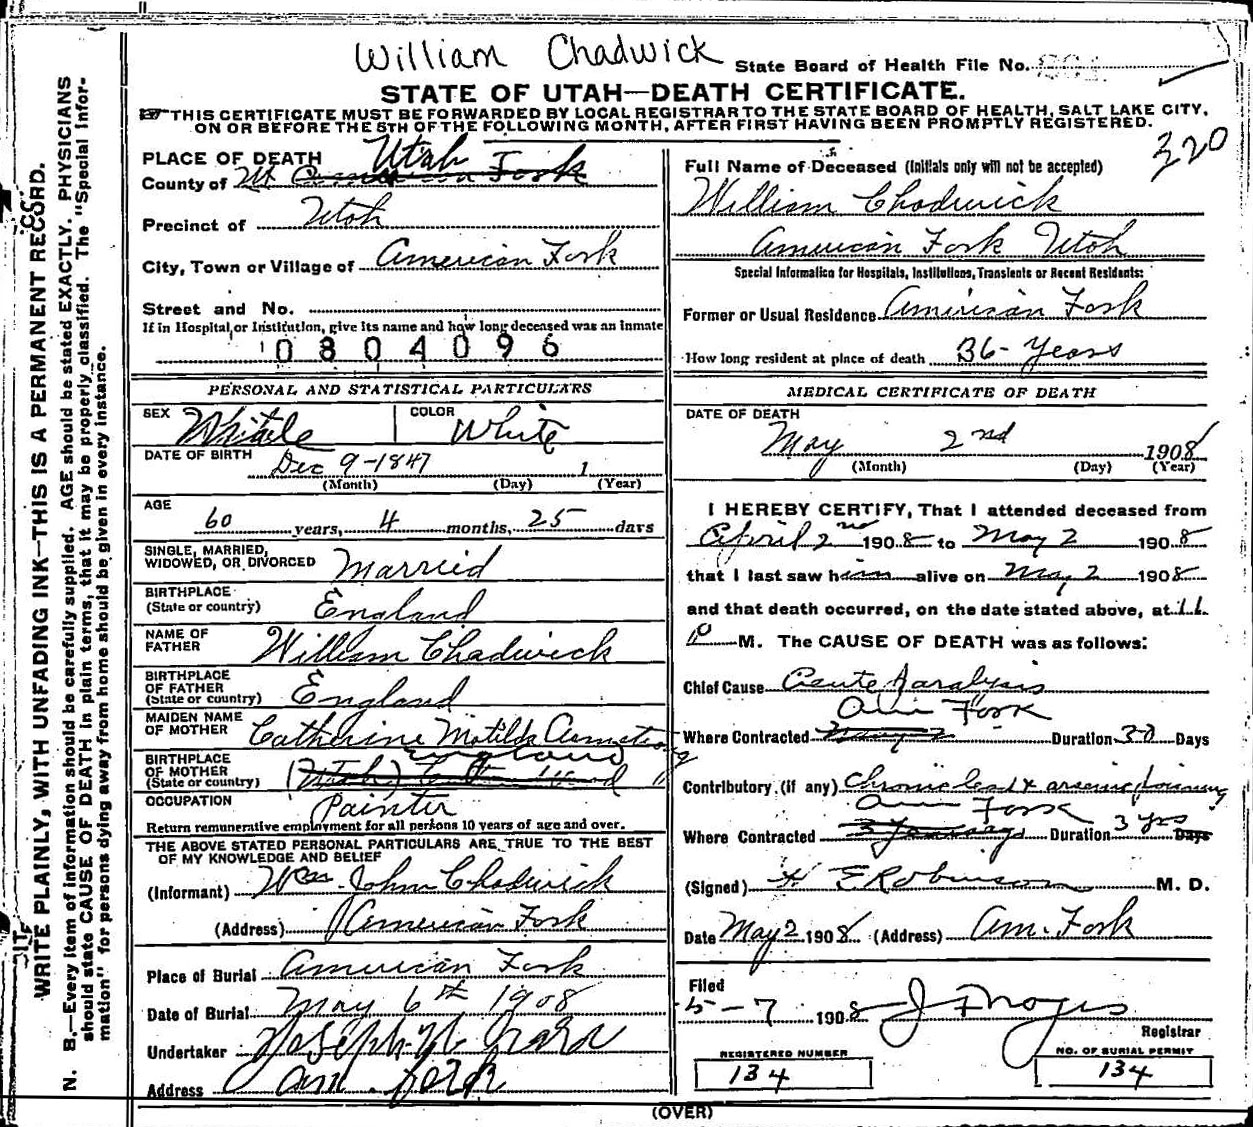 William Chadwick
State Board of Health File No.
STATE OF UTAH—DEATH CERTIFICATE.
THIS CERTIFICATE MUST BE FORWARDED BY LOCAL REGISTRAR TO THE STATE BOARD OF HEALTH, SALT LAKE CITY,
ON OR BEFORE THE 5TH OF THE FOLLOWING MONTH, AFTER FIRST HAVING BEEN PROMPTLY REGISTERED.
320
WRITE PLAINLY, WITH UNFADING INK—THIS IS A PERMANENT RECORD.
N. B.—Every item of information should be carefully supplied. AGE should be stated EXACTLY. PHYSICIANS
should state CAUSE OF DEATH in plain terms, that it may be properly classified. The "Special Infor-
mation" for persons dying away from home should be given in every instance.
PLACE OF DEATH Utah
County of American Fork
Precinct of Utah
City, Town or Village of American Fork
Street and No.
If in Hospital or Institution, give its name and how long deceased was an inmate
0804096
PERSONAL AND STATISTICAL PARTICULARS
SEX COLOR White
DATE OF BIRTH Dec 9-1847 1
(Month) (Day) (Year)
AGE
60 years, 4 months, 25 days
SINGLE, MARRIED,
WIDOWED, OR DIVORCED Married
BIRTHPLACE
(State or country) England
NAME OF
FATHER William Chadwick
BIRTHPLACE
OF FATHER
(State or country) England
MAIDEN NAME
OF MOTHER Catherine Matilda Armstrong
BIRTHPLACE England
OF MOTHER
(State or country) (Utah)
OCCUPATION Painter
Return remunerative employment for all persons 10 years of age and over.
THE ABOVE STATED PERSONAL PARTICULARS ARE TRUE TO THE BEST
OF MY KNOWLEDGE AND BELIEF
(Informant) Wm. John Chadwick
(Address) American Fork
Place of Burial American Fork
Date of Burial May 6th 1908
Undertaker Joseph H
Address Am. Fork
Full Name of Deceased (Initials only will not be accepted)
William Chadwick
American Fork Utah
Special Information for Hospitals, Institutions, Transients or Recent Residents:
Former or Usual Residence American Fork
How long resident at place of death 36-Years
MEDICAL CERTIFICATE OF DEATH
DATE OF DEATH
May 2nd 1908
(Month) (Day) (Year)
I HEREBY CERTIFY, That I attended deceased from
April 2nd 1908 to May 2 1908
that I last saw him alive on May 2 1908
and that death occurred, on the date stated above, at 11
P M. The CAUSE OF DEATH was as follows:
Chief Cause Acute Paralysis
Am Fork
Where Contracted May 2 Duration 30 Days
Contributory (if any) Chronic lead & arsenic poisoning
Am Fork
Where Contracted Duration 3 yrs Days
(Signed) E Robinson M. D.
Date May 2 1908 (Address) Am. Fork
Filed
5-7 1908 J F Noyes
Registrar
REGISTERED NUMBER
134
NO. OF BURIAL PERMIT
134
(OVER)